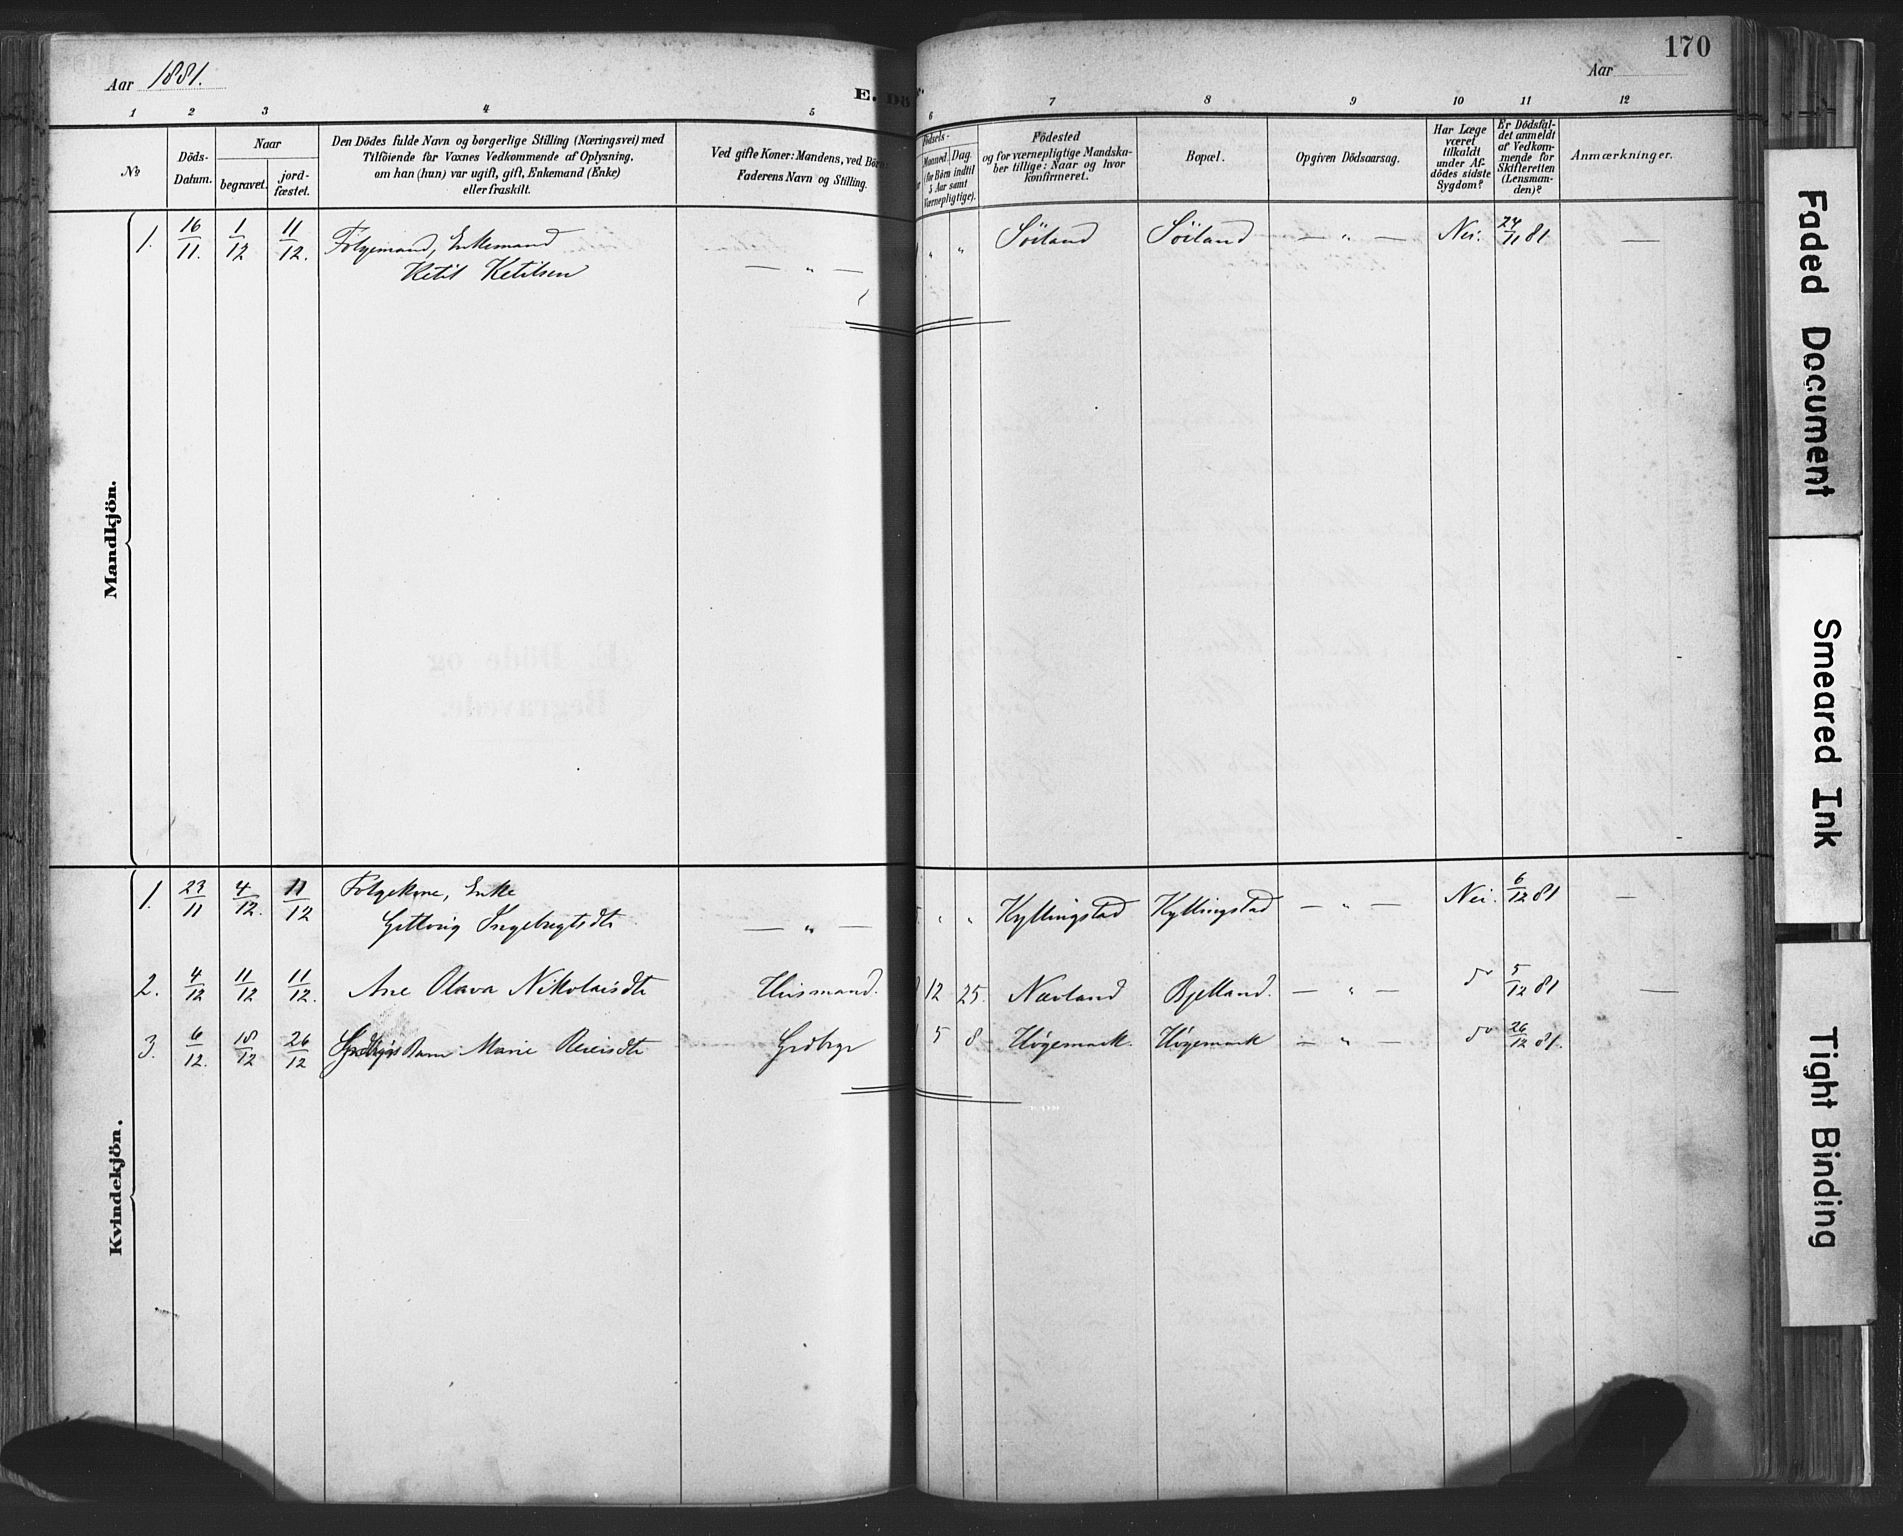 170
Aar 1881.
Aar
E. Dö
1 2 3 4 5 6 7 8 9 10 11 12
No
Döds-
Datum.
Naar
begravet.
jord-
fæstet.
Den Dödes fulde Navn og borgerlige Stilling (Næringsvei) med
Tilföiende for Voxnes Vedkommende af Oplysning,
om han (hun) var ugift, gift, Enkemand (Enke)
eller fraskilt.
Ved gifte Koner: Mandens, ved Börn:
Faderens Navn og Stilling.
Födsels-
Maaned. Dag.
(for Börn indtil
5 Aar samt
Værnepligtige).
Födested
og for værnepligtige Mandska-
ber tillige: Naar og hvor
konfirmeret.
Bopæl.
Opgiven Dödsaarsag.
Har Læge
været
tilkaldt
under Af-
dödes sidste
Sygdom?
Er Dödsfal-
det anmeldt
af Vedkom-
mende for
Skifteretten
(Lensman-
den)?
Anmærkninger.
Mandkjön.
1. 16/11. 1/12 11/12. Folgemand, Enkemand — " — " " Söiland Söiland — " — Nei. 24/11 81 —
Ketil Ketilsen
Kvindekjön.
1. 23/11 4/12. 11/12 Folgekone, Enke — " — " " Kyllingstad Kyllingstad — " — Nei. 6/12 81 —
Ingebregtsdtr
2. 4/12 11/12 11/12. Ane Olava Nikolaisdtr Husmand. 12 25. Nævland Bjelland. — " — do 5/12 81 —
3. 6/12. 18/12 26/12 Marie Reiersdtr Grdbrgr 5 8 Høgemark. Høgemark — " — do 26/12 81.
Faded Document
Smeared Ink
Tight Binding